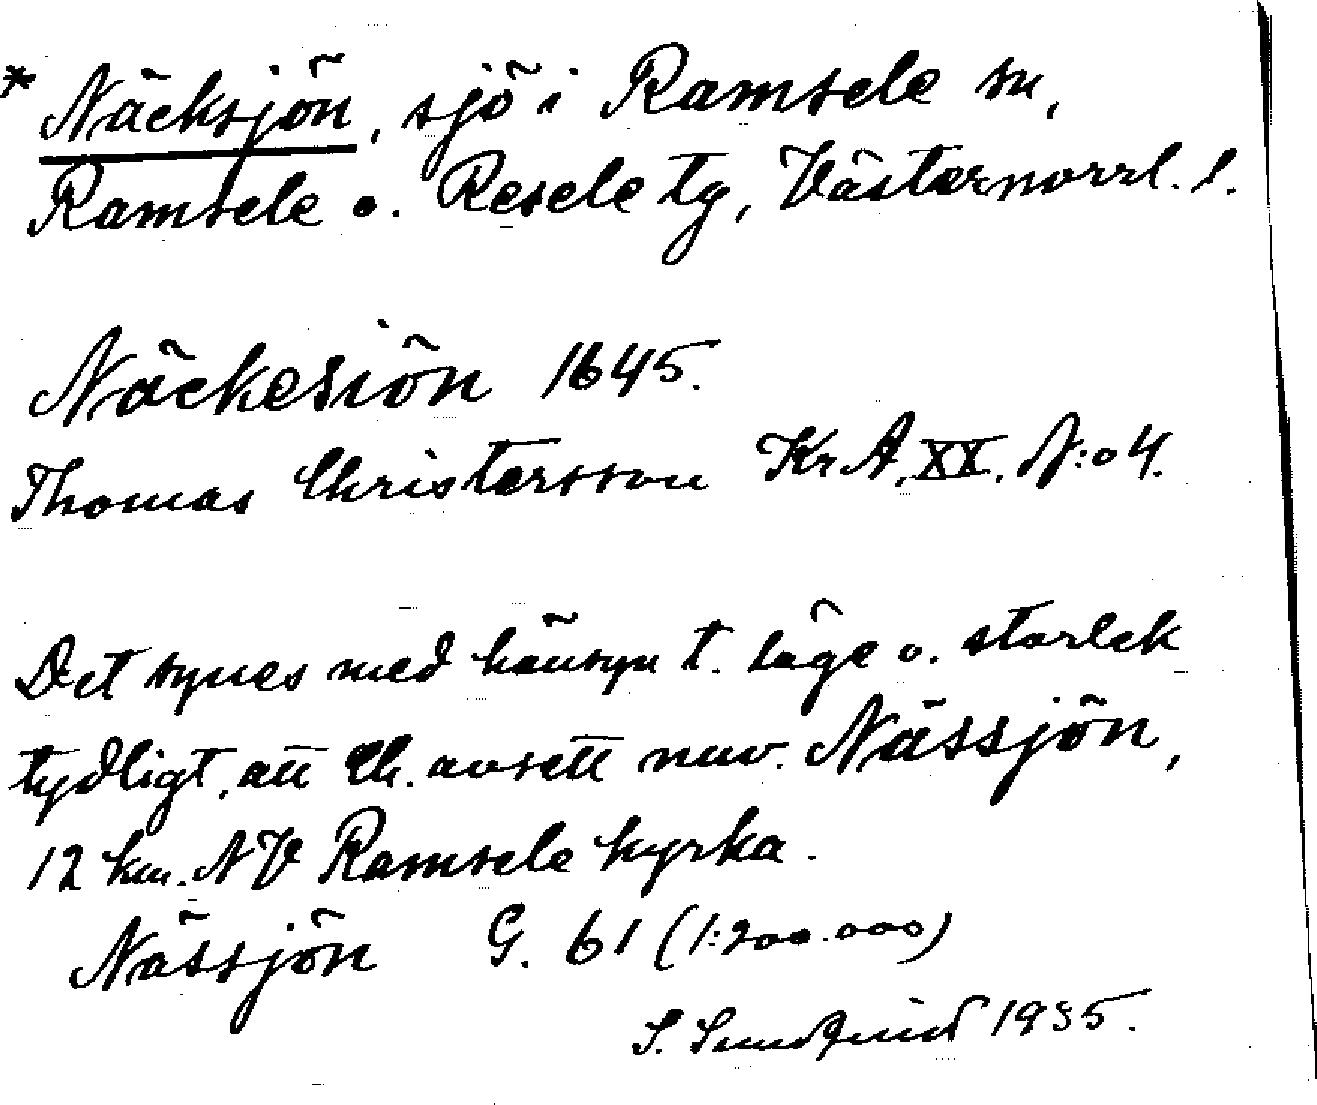 * Näcksjön, sjö i Ramsele sn,
Ramsele o. Resele tg, Västernorrl. l.
Näckesiön 1645.
Thomas Christersson KrA. XX. N:o 4.
Det synes med hänsyn t. läge o. storlek
tydligt, att Ch. avsett nuv. Nässjön,
12 km. NV Ramsele kyrka.
Nässjön G. 61 (1:200.000)
S. Sundquist 1935.